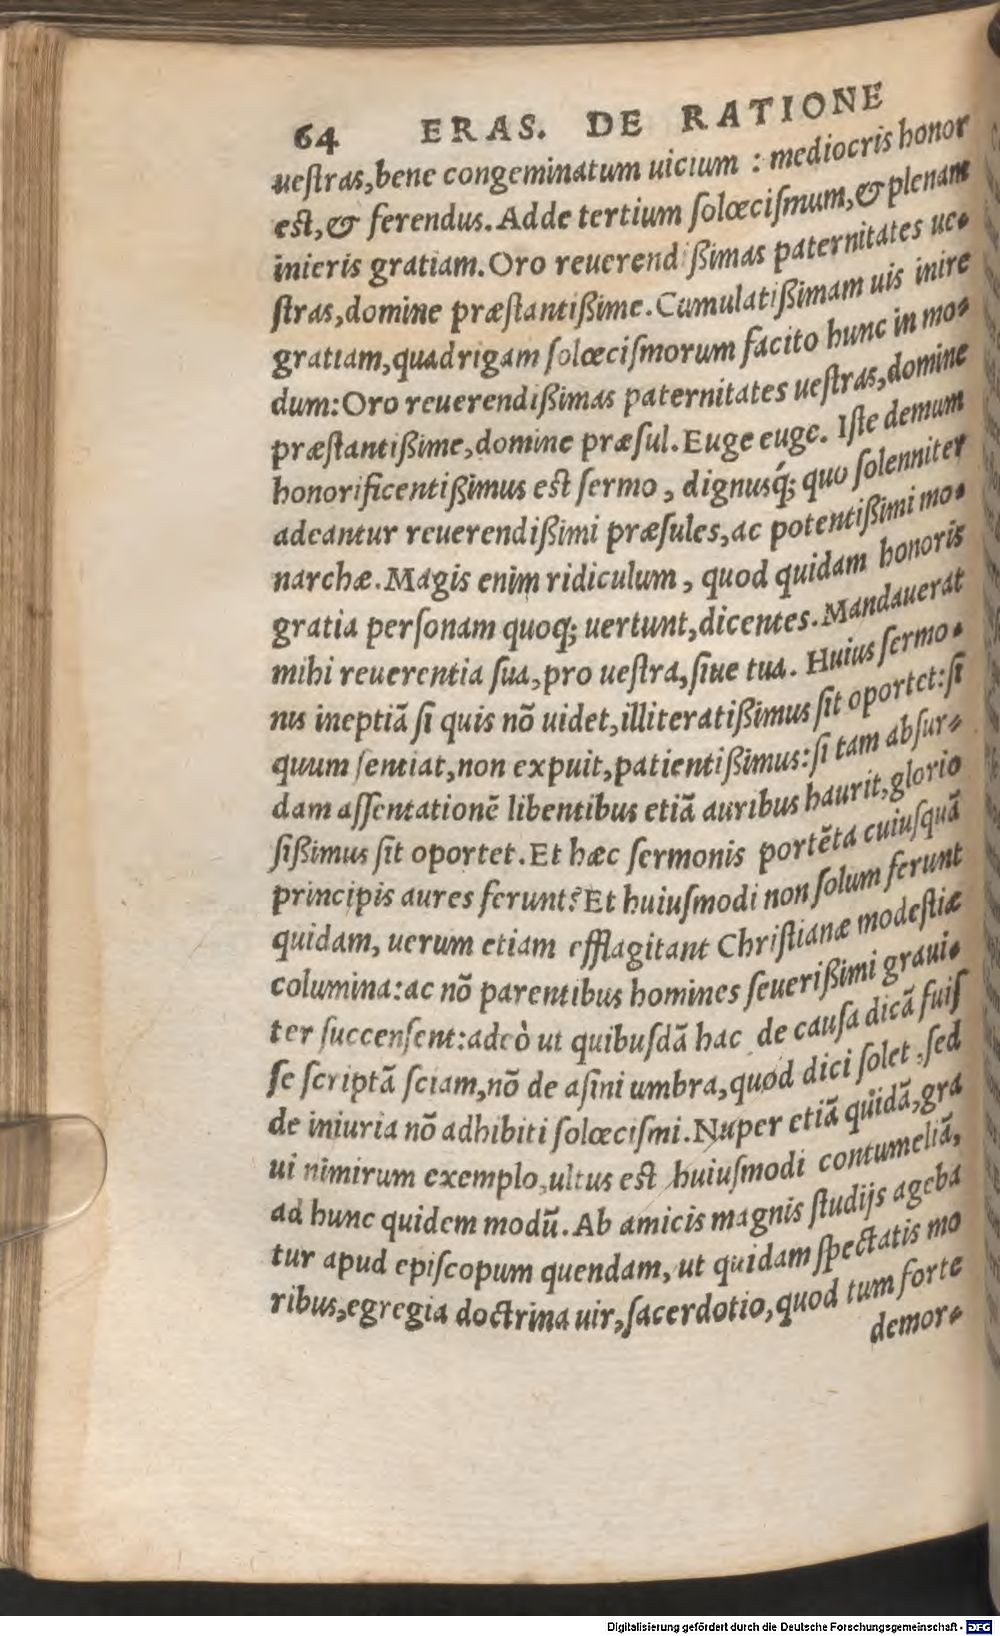 64 ERAS. DE RATIONE
ueſtras,bene congeminatum uicium : mediocris honor
est,& ferendus. Adde tertium ſolœciſmum,& plenam
inieris gratiam. Oro reuerendißimas paternitates ue-
ſtras,domine præſtantißime. Cumulatißimam uis inire
gratiam,quadrigam ſolœciſmorum facito hunc in mo-
dum: Oro reuerendißimas paternitates ueſtras,domine
præſtantißime,domine præſul. Euge euge. Iſte demum
honorificentißimus est ſermo, dignusq́; quo ſolenniter
adeantur reuerendißimi præſules,ac potentißimi mo-
narchæ. Magis enim ridiculum, quod quidam honoris
gratia perſonam quoq; uertunt,dicentes. Mandauerat
mihi reuerentia ſua,pro ueſtra,ſiue tua. Huius ſermo-
nis ineptiã ſi quis nõ uidet,illiteratißimus ſit oportet: ſi
quum ſentiat,non expuit,patientißimus: ſi tam abſur-
dam aſſentationẽ libentibus etiã auribus haurit,glorio
ſißimus ſit oportet. Et hæc ſermonis portẽta cuiuſquã
principis aures ferunt? Et huiuſmodi non ſolum ferunt
quidam, uerum etiam efflagitant Chriſtianæ modeſtiæ
columina: ac nõ parentibus homines ſeuerißimi graui-
ter ſuccenſent: adeò ut quibuſdã hac de cauſa dicã fuiſ
ſe ſcriptã ſciam,nõ de aſini umbra,quod dici ſolet,ſed
de iniuria nõ adhibiti ſolœciſmi. Nuper etiã quidã,gra
ui nimirum exemplo,ultus est huiuſmodi contumeliã,
ad hunc quidem modũ. Ab amicis magnis ſtudijs ageba
tur apud epiſcopum quendam, ut quidam ſpectatis mo
ribus,egregia doctrina uir,ſacerdotio,quod tum forte
demor-
Digitalisierung gefördert durch die Deutsche Forschungsgemeinschaft - DFG